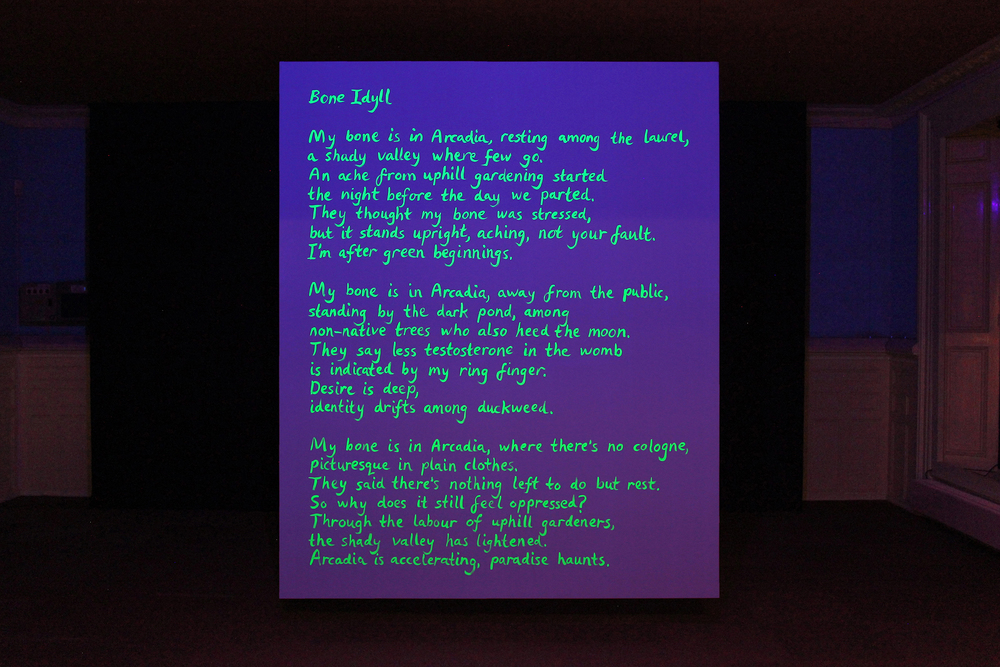 Bone Idyll
My bone is in Arcadia, resting among the laurel,
a shady valley where few go.
An ache from uphill gardening started
the night before the day we parted.
They thought my bone was stressed,
but it stands upright, aching, not your fault.
I'm after green beginnings.
My bone is in Arcadia, away from the public,
standing by the dark pond, among
non-native trees who also heed the moon.
They say less testosterone in the womb
is indicated by my ring finger.
Desire is deep,
identity drifts among duckweed.
My bone is in Arcadia, where there's no cologne,
picturesque in plain clothes.
They said there's nothing left to do but rest.
So why does it still feel oppressed?
Through the labour of uphill gardeners,
the shady valley has lightened.
Arcadia is accelerating, paradise haunts.